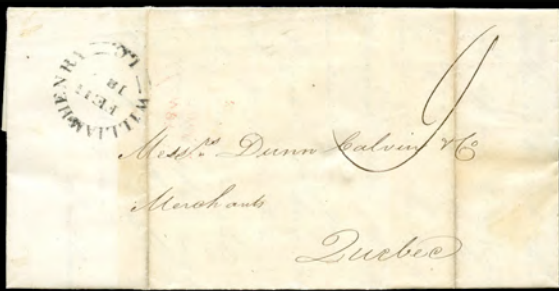 WILLIAM HENRY L.C.
FE 11
18
9
Mess.rs Dunn Calvin & Co
Merchants
Quebec